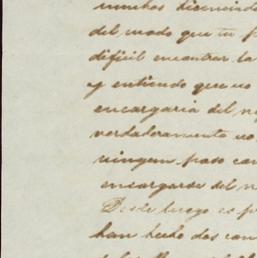 muchas diciendo
del modo que tu p
dificil encontrar la
y entiendo que no
encargaria del n
verdaderamente no
ningun paso con
encargarse del n
Desde luego es p
han hecho dos con